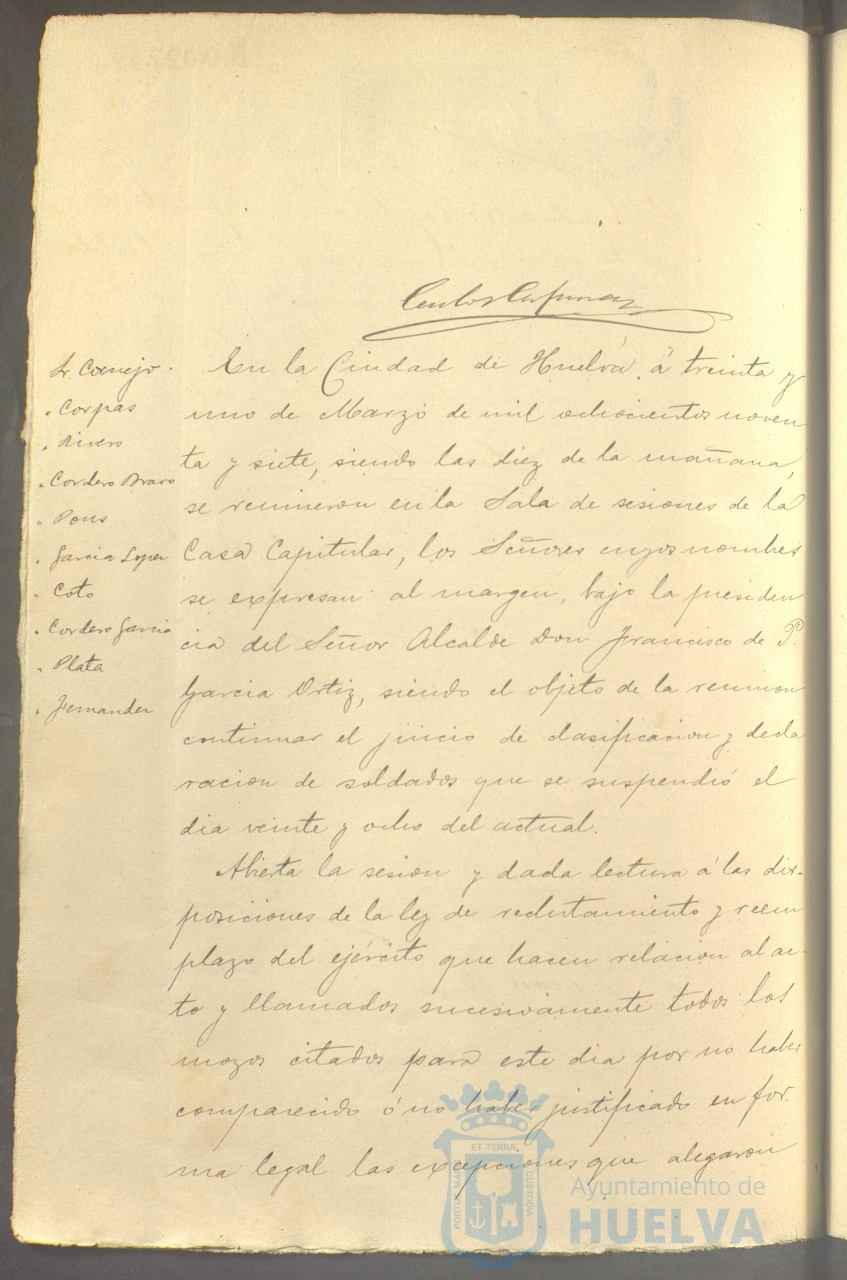 Sr. Cornejo.
" Corpas
" Rivero
" Cordero Bravo
" Pons
" Garcia Lopez
" Coto
" Cordero Garcia
" Plata
" Fernandez
En la Ciudad de Huelva, á treinta y
uno de Marzo de mil ochocientos noven
ta y siete, siendo las diez de la mañana,
se reunieron en la Sala de sesiones de la
Casa Capitular, los Señores cuyos nombres
se expresan al margen, bajo la presiden
cia del Señor Alcalde Don Francisco de P.
Garcia Ortiz, siendo el objeto de la reunion
continuar el juicio de clasificacion y decla
racion de soldados que se suspendió el
dia veinte y ocho del actual.
Abierta la sesion y dada lectura á las dis-
posiciones de la ley de reclutamiento y reem
plazo del ejército que hacen relacion al ac-
to y llamados sucesivamente todos los
mozos citados para este dia por no haber
comparecido ó no haber justificado en for-
ma legal las excepciones que alegaron
PORTUS MARIS
ET TERRÆ
CUSTODIA
Ayuntamiento de
HUELVA